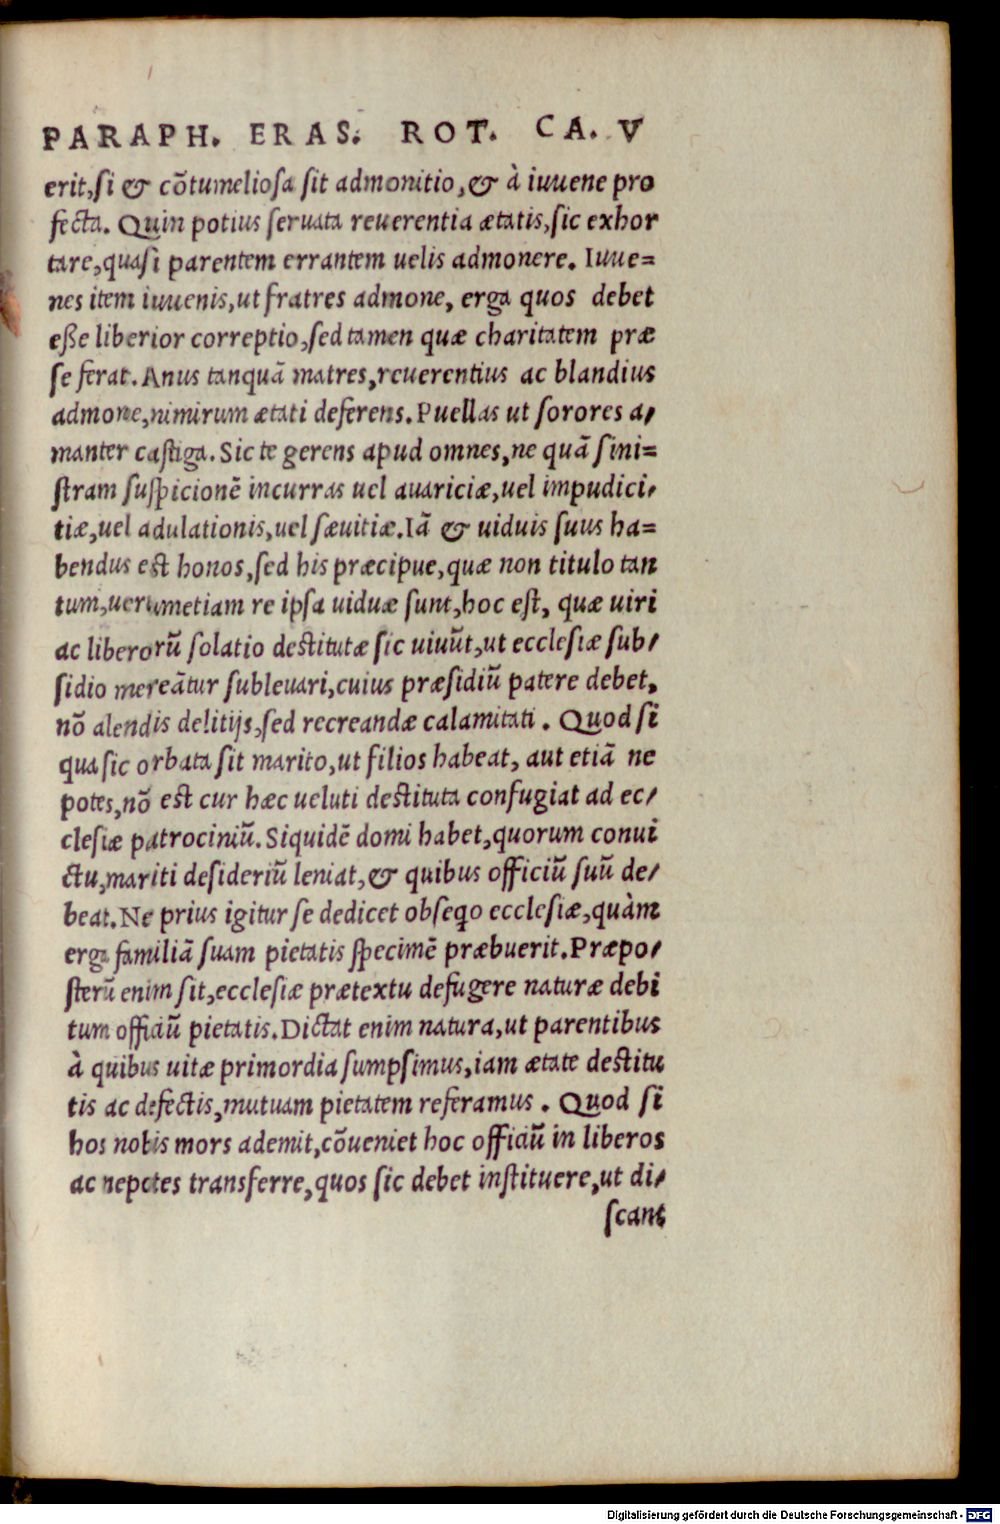 PARAPH. ERAS. ROT. CA. V
erit,ſi & cõtumelioſa ſit admonitio,& à iuuene pro
fecta. Quin potius ſeruata reuerentia ætatis,ſic exhor
tare,quaſi parentem errantem uelis admonere. Iuue=
nes item iuuenis,ut fratres admone, erga quos debet
eße liberior correptio,ſed tamen quæ charitatem præ
ſe ferat. Anus tanquã matres,reuerentius ac blandius
admone,nimirum ætati deferens. Puellas ut ſorores a/
manter caſtiga. Sic te gerens apud omnes,ne quã ſini=
ſtram ſuſpicionẽ incurras uel auariciæ,uel impudici/
tiæ,uel adulationis,uel ſæuitiæ. Iã & uiduis ſuus ha=
bendus eſt honos,ſed his præcipue,quæ non titulo tan
tum,uerumetiam re ipſa uiduæ ſunt,hoc eſt, quæ uiri
ac liberorũ ſolatio deſtitutæ ſic uiuũt,ut eccleſiæ ſub/
ſidio mereãtur ſubleuari,cuius præſidiũ patere debet,
nõ alendis delitijs,ſed recreandæ calamitati . Quod ſi
qua ſic orbata ſit marito,ut filios habeat, aut etiã ne
potes,nõ eſt cur hæc ueluti deſtituta confugiat ad ec/
cleſiæ patrociniũ. Siquidẽ domi habet,quorum conui
ctu,mariti deſideriũ leniat,& quibus officiũ ſuũ de/
beat. Ne prius igitur ſe dedicet obſeqo eccleſiæ,quàm
erga familiã ſuam pietatis ſpecimẽ præbuerit. Præpo/
ſterũ enim ſit,eccleſiæ prætextu defugere naturæ debi
tum officiũ pietatis. Dictat enim natura,ut parentibus
à quibus uitæ primordia ſumpſimus,iam ætate deſtitu
tis ac defectis,mutuam pietatem referamus . Quod ſi
hos nobis mors ademit,cõueniet hoc officiũ in liberos
ac nepotes transferre,quos ſic debet inſtituere,ut di/
ſcant
Digitalisierung gefördert durch die Deutsche Forschungsgemeinschaft - DFG